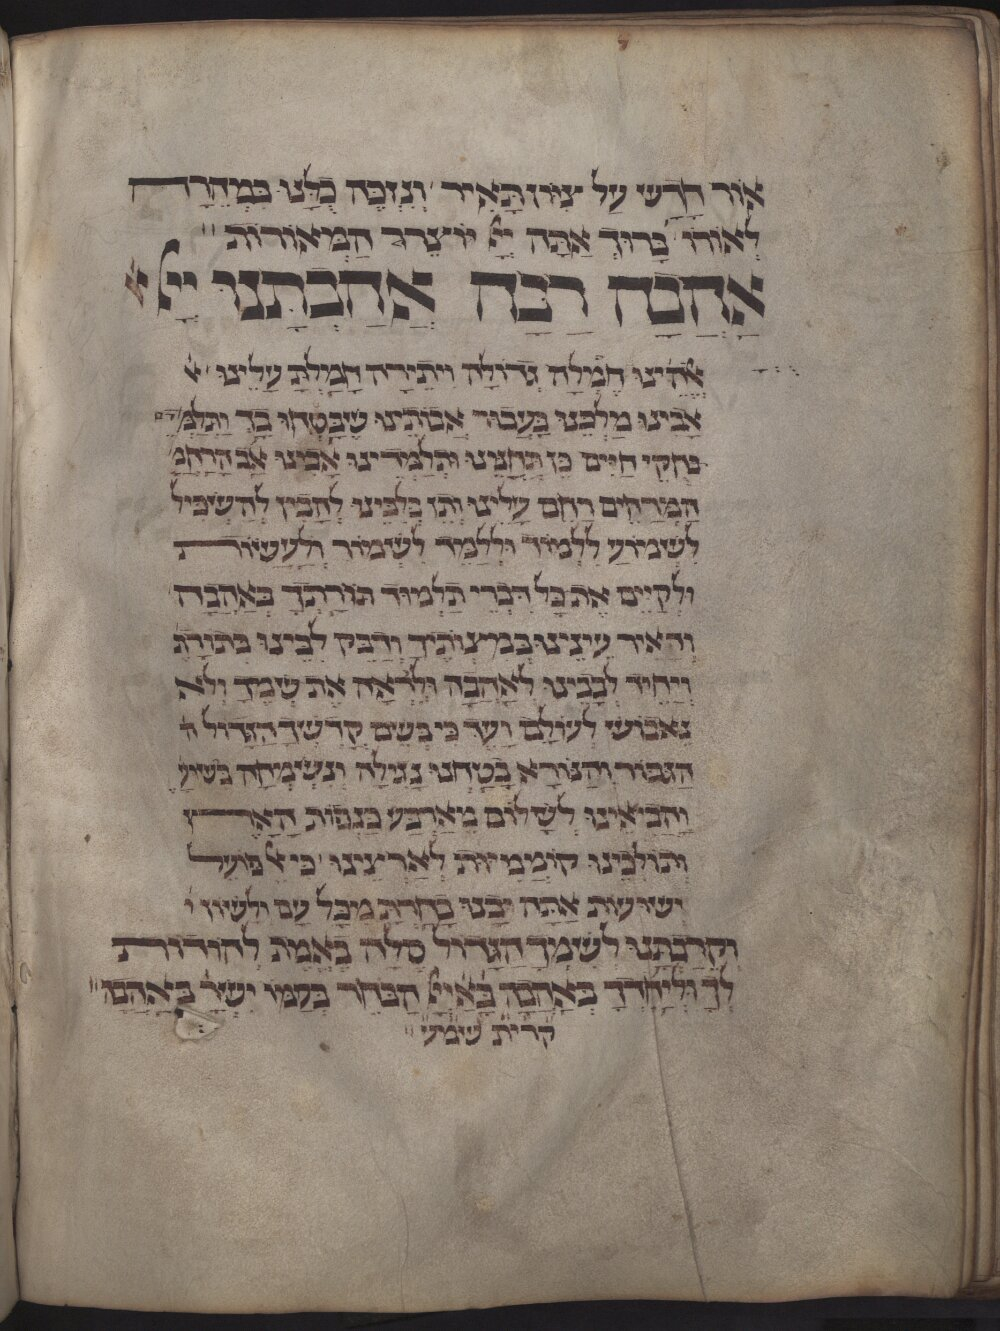 אוֹר חָדָשׁ עַל צִיּוֹן תָּאִיר וְנִזְכֶּה כֻלָּנוּ בִּמְהֵרָה
לְאוֹרוֹ בָּרוּךְ אַתָּה יְיָ יוֹצֵר הַמְּאוֹרוֹת
אַהֲבָה רַבָּה אֲהַבְתָּנוּ יְיָ
אֱלֹהֵינוּ חֶמְלָה גְדוֹלָה וִיתֵרָה חָמַלְתָּ עָלֵינוּ
אָבִינוּ מַלְכֵּנוּ בַּעֲבוּר אֲבוֹתֵינוּ שֶׁבָּטְחוּ בָךְ וַתְּלַמְּדֵם
חֻקֵּי חַיִּים כֵּן תְּחָנֵּינוּ וּתְלַמְּדֵינוּ אָבִינוּ אָב הָרַחֲמָ
הַמְרַחֵים רַחֵם עָלֵינוּ וְתֵן בְּלִבֵּינוּ לְהָבִין לְהַשְׂכִּיל
לִשְׁמוֹעַ לִלְמוֹד וּלְלַמֵּד לִשְׁמוֹר וְלַעֲשׂוֹת
וּלְקַיֵּים אֶת כָּל דִּבְרֵי תַלְמוּד תּוֹרָתָךְ בְּאַהֲבָה
וְהָאֵיר עֵינֵינוּ בְּמִצְוֹתֶיךָ וְדַבֵּק לִבֵּינוּ בְּתוֹרָתֶ
וְיַחֵיד לְבָבֵינוּ לְאַהֲבָה וּלְיִרְאָה אֶת שְׁמָךְ וְלֹא
נֵאבוֹשׁ לְעוֹלָם וָעֶד כִּי בְשֵׁם קָדְשָׁךְ הַגָּדוֹל ה
הַגִּבּוֹר וְהַנּוֹרָא בָּטָחְנוּ נָגִילָה וְנִשְׂמְחָה בִּישׁוּעָ
וַהֲבִיאֵינוּ לְשָׁלוֹם מֵאַרְבַּע כַּנְפוֹת הָאָרֶץ
וְתוֹלִכֵינוּ קוֹמְמִיּוּת לְאַרְצֵינוּ כִּי אֵל פּוֹעֵל
יְשׁוּעוֹת אָתָּה וּבָנוּ בָחַרְתָּ מִכָּל עַם וְלָשׁוֹן ו
וְקֵרַבְתָּנוּ לְשִׁמְךָ הַגָּדוֹל סֶלָה בֶּאֱמֶת לְהוֹדוֹת
לְךָ וּלְיַחֶדְךָ בְּאַהֲבָה בָּ אַ יְיָ הַבּוֹחֵר בְּעַמּוֹ יִשְׂרָ בְּאַהֲבָה
קרית שמע